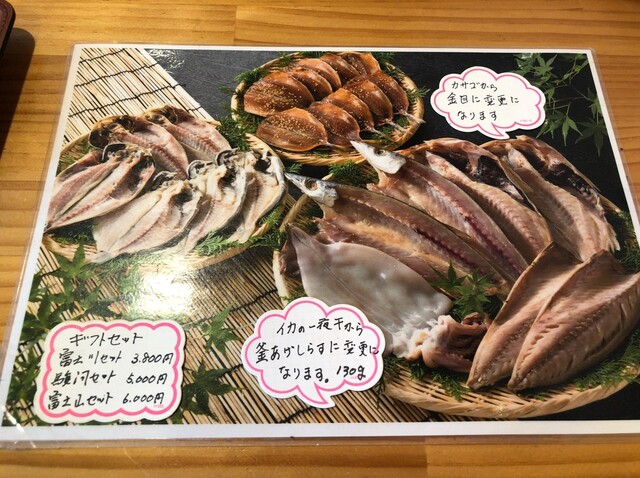 カサゴから
金目に変更に
なります
イカの一夜干から
釜あげしらすに変更に
なります。130g
ギフトセット
富士川セット 3.800円
駿河セット 5.000円
富士山セット 6.000円